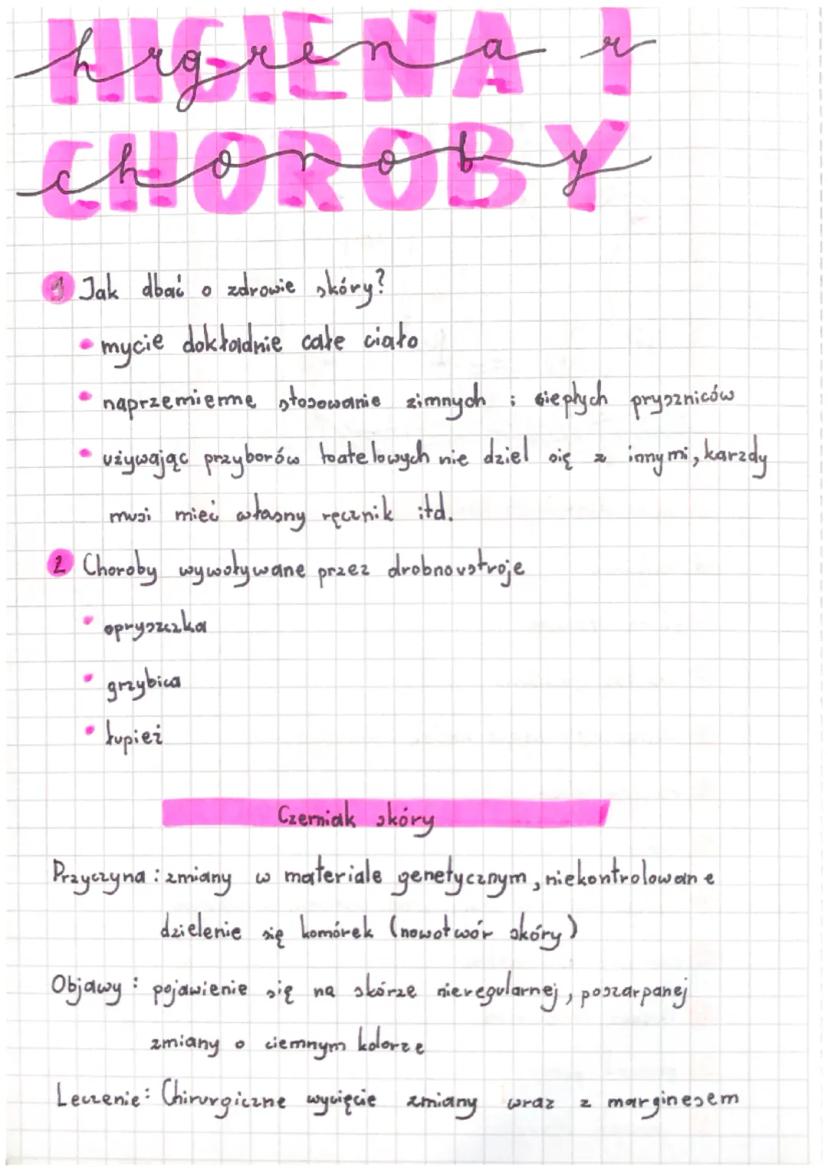 HIGIENA I
higiena i
CHOROBY
choroby
1 Jak dbać o zdrowie skóry?
• mycie dokładnie całe ciało
• naprzemienne stosowanie zimnych i ciepłych pryszniców
• używając przyborów toatelowych nie dziel się z innymi, karzdy
musi mieć własny ręcznik itd.
2 Choroby wywoływane przez drobnoustroje
• opryszczka
• grzybica
• łupież
Czerniak skóry
Przyczyna: zmiany w materiale genetycznym, niekontrolowane
dzielenie się komórek (nowotwór skóry)
Objawy: pojawienie się na skórze nieregularnej, poszarpanej
zmiany o ciemnym kolorze
Leczenie: Chirurgiczne wycięcie zmiany wraz z marginesem